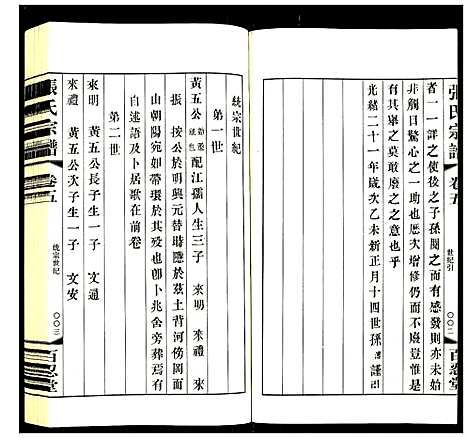 張氏宗譜 卷五 世紀引 〇〇二 百忍堂
者一一詳之使後之子孫閱之而有感發則亦未始
非觸目驚心之一助也歷次增修而不敢廢豈惟是
有其舉之莫敢廢之之意也乎
光緒二十一年歲次乙未新正月十四世孫 謹引
統宗世紀
第一世
黃五公 始遷祖也 配江孺人生三子 來明 來禮 來
振 按公於明興元替時隱於茲土背河傍岡面
山朝陽宛如帶環於其歿也卽卜兆舍旁葬焉有
自述語及卜居歌在前卷
第二世
來明 黃五公長子生一子 文通
來禮 黃五公次子生一子 文安
張氏宗譜 卷五 統宗世紀 〇〇三 百忍堂